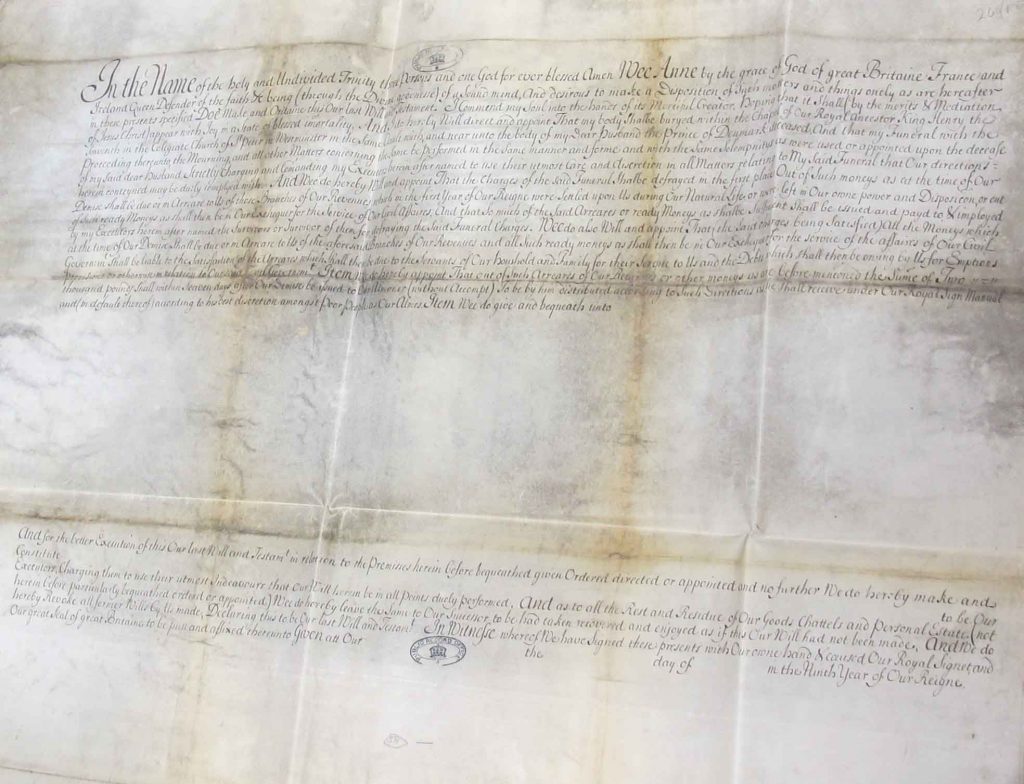 In the Name of the holy and Undivided Trinity three Persons and one God for ever blessed Amen Wee Anne by the grace of God of great Britaine France and
Ireland Queen Defender of the faith &c being (through the Divine goodness) of a sound mind, And desirous to make a Disposition of Such moneys and things onely as are hereafter
in these presents specified Doe Make and Ordaine this Our last Will & Testament. I Commend my Soul into the hands of its Merciful Creator, Hoping that it Shall (by the merits & Mediation
of Jesus Christ) appear with Joy in a State of blessed imortality, And do hereby Will direct and appoint That my body Shalbe buryed within the Chapel of Our Royal Ancestor King Henry the
Seventh in the Collegiate Church of St. Peter in Westminster in the Same vault with, and near unto the body of my dear husband the Prince of Denmark deceased, And that my Funeral with the
Proceeding thereunto the Mourning, and all other Matters concerning the same be performed in the Same manner and forme and with the Same Solemnity as were used or appointed upon the decease
of my Said dear husband Strictly Charging and Comanding my Executors herein after named to use their utmost Care and discretion in all Matters relating to My Said Funeral that Our directions
herein conteyned may be duely complyed with And Wee do hereby Will and appoint That the Charges of the Said Funeral Shalbe defrayed in the first place Out of Such moneys as at the time of Our
Demise Shall be due or in Arreare to Us of those Branches of Our Revenue which in the first Year of Our Reigne were Setled upon Us during Our Natural Life or were left in Our owne power and Disposicon, or out
of Such ready Moneys as shall then be in Our Exchequer for the Service of Our Civil Affaires, And that so much of the Said Arreares or ready Moneys as shalbe Sufficient Shall be issued and payd to & imployed
by my Executors herein after named the Survivors or Survivor of them for defraying the Said Funeral Charges. Wee do also Will and appoint That (the Said Charges being Satisfied) All the Moneys which
at the time of Our Demise Shall be due or in Arreare to Us of the aforesaid Branches of Our Revenues and all Such ready moneys as shall then be in Our Exchequer for the service of the affaires of Our Civil
Governmt. Shall be liable to the Satisfaction of the Arreares which Shall then be due to the Servants of Our Houshold and Family for their Service to Us and the Debts which shall then be owing by Us for Emptions
Provisions or otherwise in relation to Our Civil Governmt. Item We do hereby appoint That out of Such Arreares of Our Revenues or other moneys as are before mencioned the Sume of Two
thousand pounds Shall within Seaven days after Our Demise be issued to Our Almoner (without Accompt) To be by him distributed according to Such Directions as he Shall receive under Our Royal Sign Manual
and (in default thereof) according to his best discretion amongst Poor People as Our Almes Item We do give and bequeath unto
And for the better Execution of this Our last Will and Testamt. in relation to the Premisses herein before bequeathed given Ordered directed or appointed and no further We do hereby make and
Constitute to be Our
Executors, Charging them to use their utmost Indeavours that Our Will herein be in all Points duely performed, And as to all the Rest and Residue of Our Goods Chattels and Personal Estate (not
herein before particularly bequeathed ordered or appointed) We do hereby leave the Same to Our Successor, to be had taken received and enjoyed as if this Our Will had not been made, And We do
hereby Revoke all former Wills by Us made, Declaring this to be Our last Will and Testamt. In Witness whereof We have Signed these presents with Our owne hand & caused Our Royal Signet and
Our great Seal of great Britaine to be putt and affixed thereunto Given at Our the day of in the Ninth Year of Our Reigne.